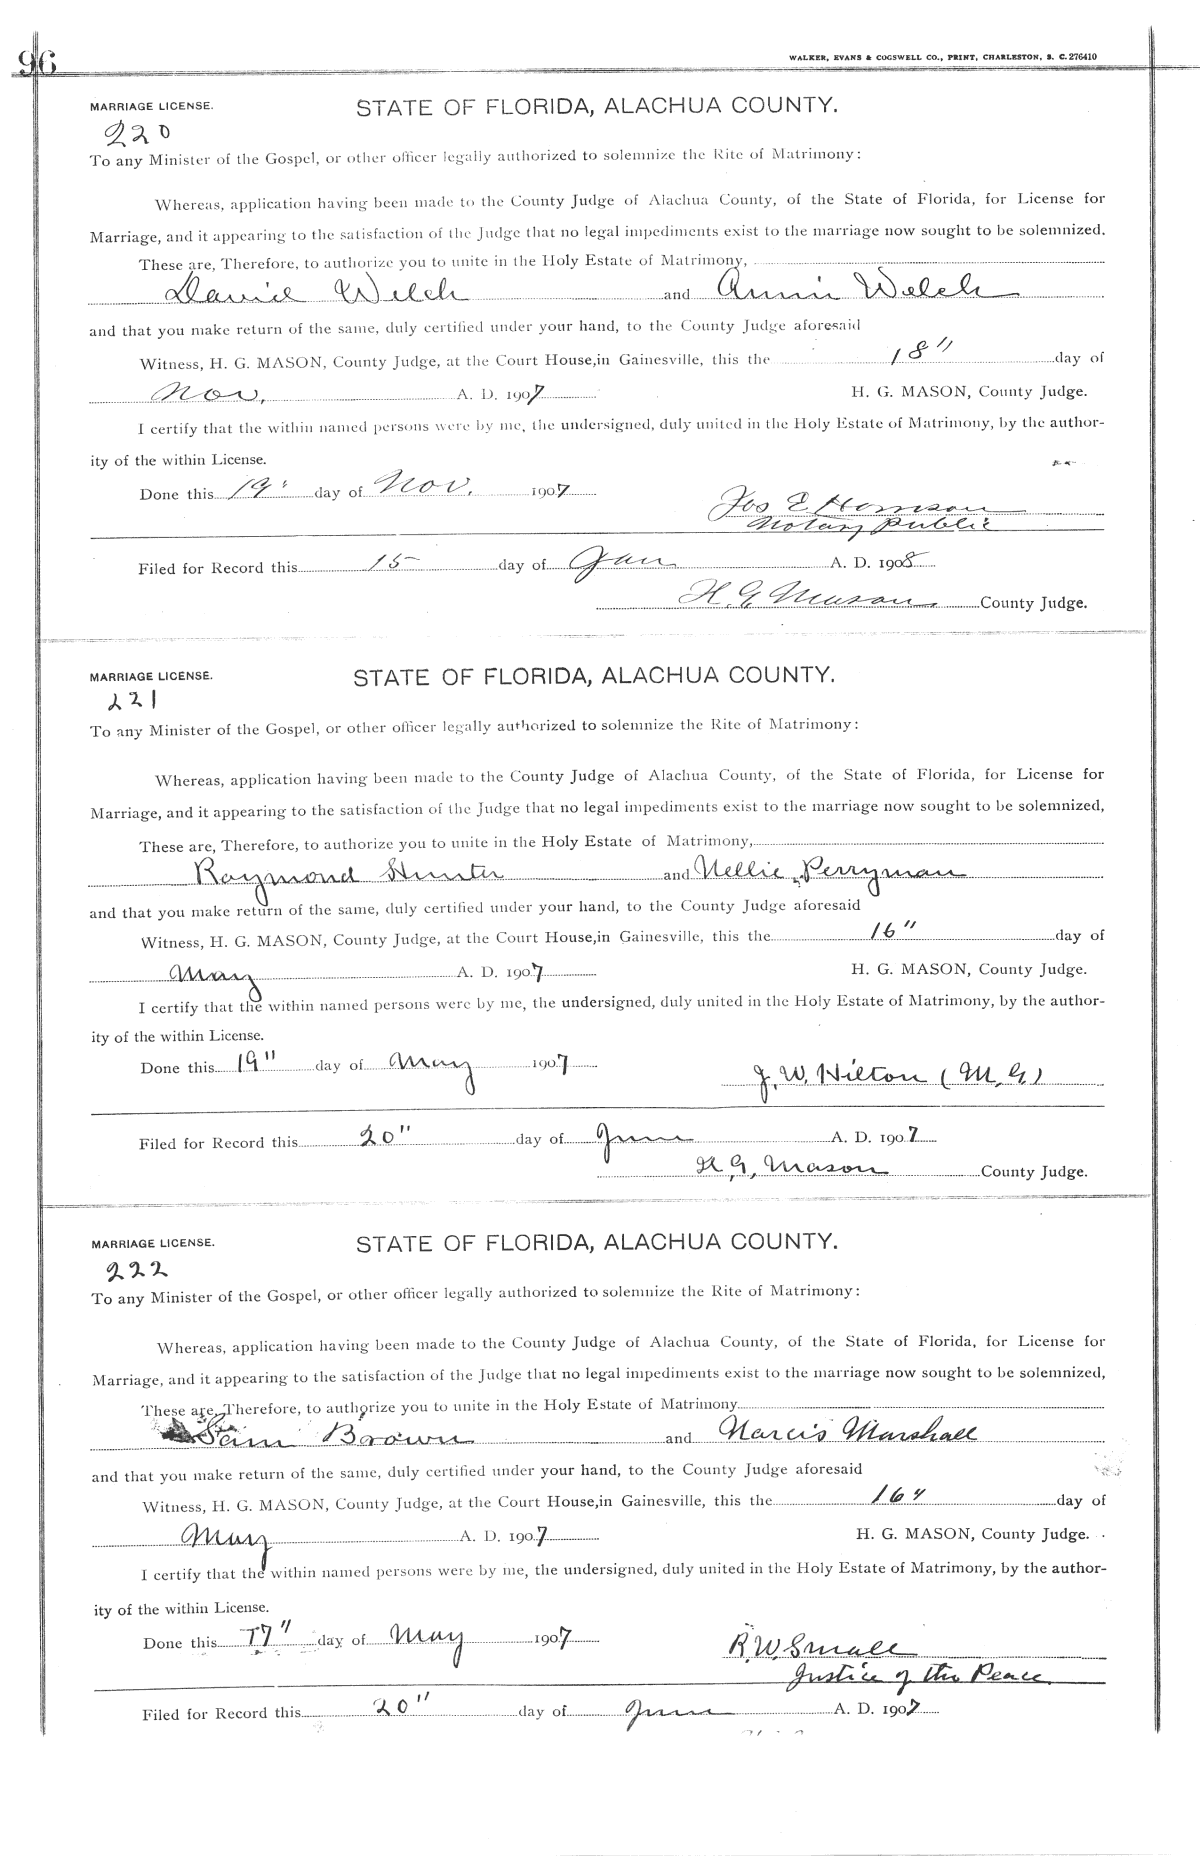 96
WALKER, EVANS & COGSWELL CO., PRINT, CHARLESTON, S. C. 276410
MARRIAGE LICENSE.
STATE OF FLORIDA, ALACHUA COUNTY.
220
To any Minister of the Gospel, or other officer legally authorized to solemnize the Rite of Matrimony:
Whereas, application having been made to the County Judge of Alachua County, of the State of Florida, for License for
Marriage, and it appearing to the satisfaction of the Judge that no legal impediments exist to the marriage now sought to be solemnized.
These are, Therefore, to authorize you to unite in the Holy Estate of Matrimony,
Daniel Welch and Annie Welch
and that you make return of the same, duly certified under your hand, to the County Judge aforesaid
Witness, H. G. MASON, County Judge, at the Court House, in Gainesville, this the 18" day of
Nov, A. D. 1907 H. G. MASON, County Judge.
I certify that the within named persons were by me, the undersigned, duly united in the Holy Estate of Matrimony, by the author-
ity of the within License.
Done this 19" day of Nov. 1907
Jos E
Notary Public
Filed for Record this 15 day of Jan A. D. 1908
H. G. Mason. County Judge.
MARRIAGE LICENSE.
STATE OF FLORIDA, ALACHUA COUNTY.
221
To any Minister of the Gospel, or other officer legally authorized to solemnize the Rite of Matrimony:
Whereas, application having been made to the County Judge of Alachua County, of the State of Florida, for License for
Marriage, and it appearing to the satisfaction of the Judge that no legal impediments exist to the marriage now sought to be solemnized,
These are, Therefore, to authorize you to unite in the Holy Estate of Matrimony,
Raymond Hunter and Nellie Perryman
and that you make return of the same, duly certified under your hand, to the County Judge aforesaid
Witness, H. G. MASON, County Judge, at the Court House, in Gainesville, this the 16" day of
May A. D. 1907 H. G. MASON, County Judge.
I certify that the within named persons were by me, the undersigned, duly united in the Holy Estate of Matrimony, by the author-
ity of the within License.
Done this 19" day of May 1907
J. W. Hilton (M. G.)
Filed for Record this 20" day of June A. D. 1907
H. G. Mason County Judge.
MARRIAGE LICENSE.
STATE OF FLORIDA, ALACHUA COUNTY.
222
To any Minister of the Gospel, or other officer legally authorized to solemnize the Rite of Matrimony:
Whereas, application having been made to the County Judge of Alachua County, of the State of Florida, for License for
Marriage, and it appearing to the satisfaction of the Judge that no legal impediments exist to the marriage now sought to be solemnized,
These are, Therefore, to authorize you to unite in the Holy Estate of Matrimony
Sam Brown and Narcis Marshall
and that you make return of the same, duly certified under your hand, to the County Judge aforesaid
Witness, H. G. MASON, County Judge, at the Court House, in Gainesville, this the 16" day of
May A. D. 1907 H. G. MASON, County Judge.
I certify that the within named persons were by me, the undersigned, duly united in the Holy Estate of Matrimony, by the author-
ity of the within License.
Done this 17" day of May 1907
R. W. Small
Justice of the Peace.
Filed for Record this 20" day of June A. D. 1907